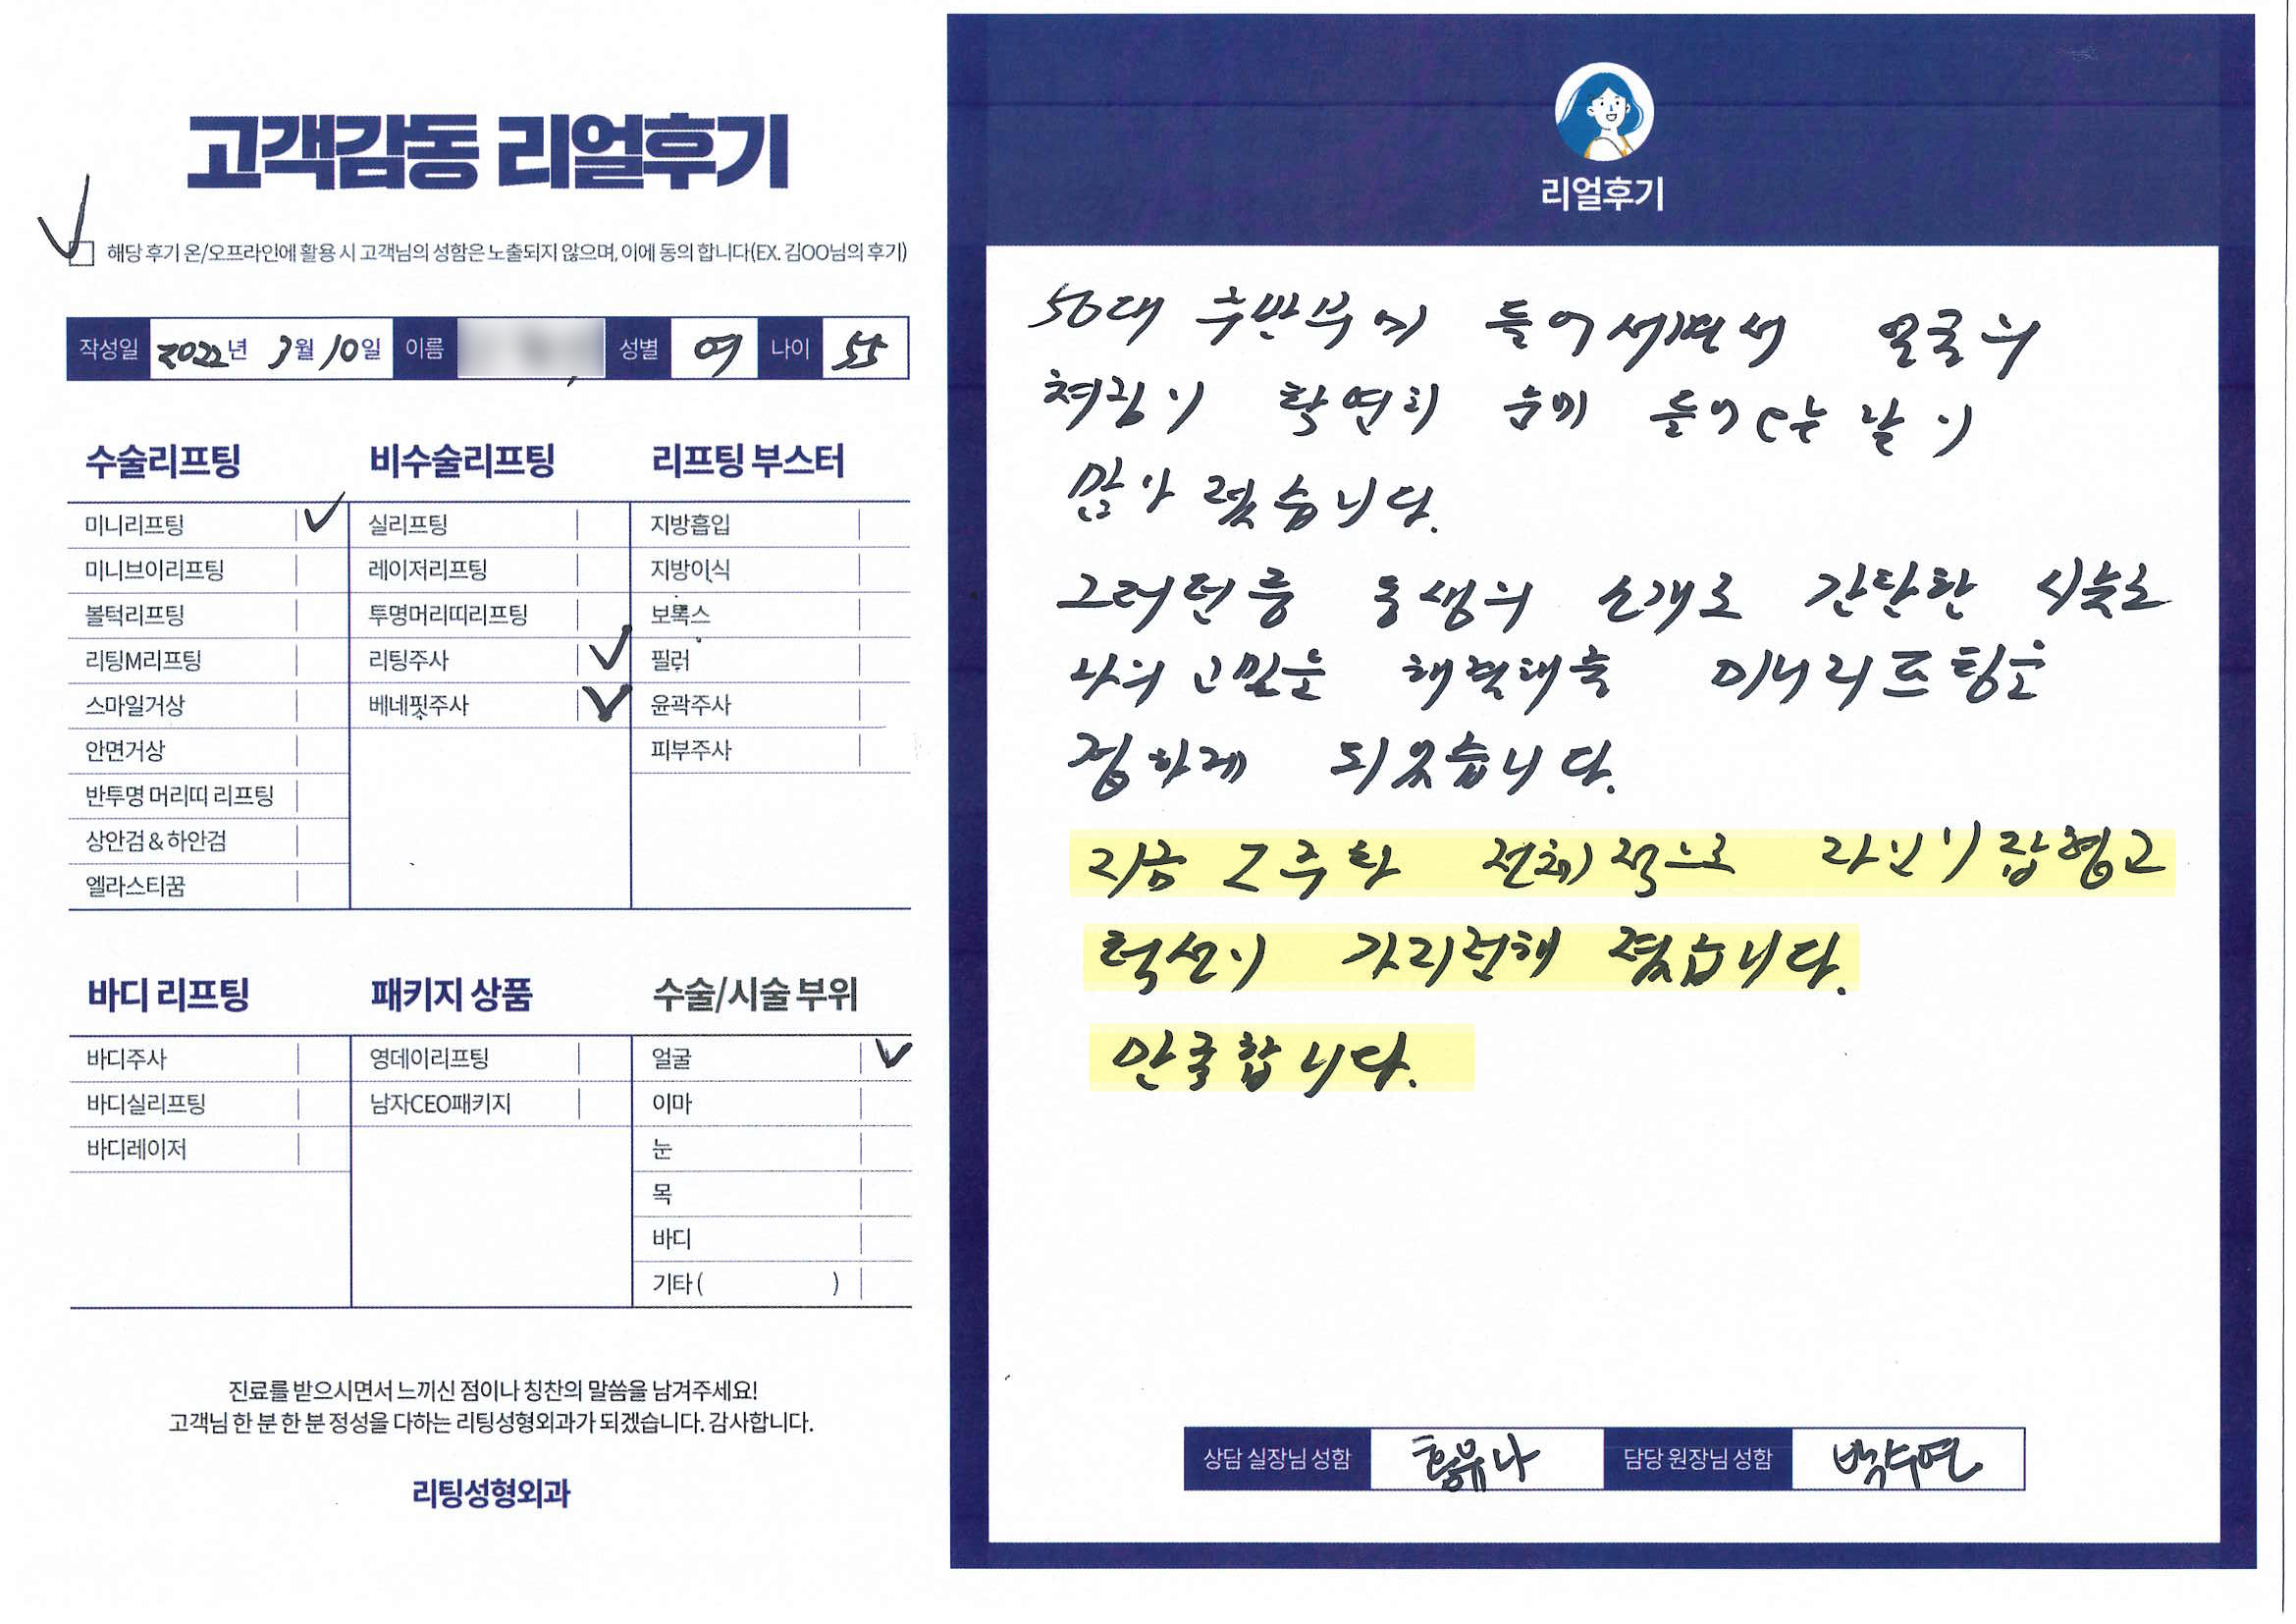 고객감동 리얼후기
해당 후기 온/오프라인에 활용 시 고객님의 성함은 노출되지 않으며, 이에 동의 합니다(EX. 김OO님의 후기)
작성일 2022년 3월 10일 이름 성별 여 나이 55
수술리프팅
미니리프팅
미니브이리프팅
볼턱리프팅
리팅M리프팅
스마일거상
안면거상
반투명 머리띠 리프팅
상안검 & 하안검
엘라스티꿈
비수술리프팅
실리프팅
레이저리프팅
투명머리띠리프팅
리팅주사
베네핏주사
리프팅 부스터
지방흡입
지방이식
보톡스
필러
윤곽주사
피부주사
바디 리프팅
바디주사
바디실리프팅
바디레이저
패키지 상품
영데이리프팅
남자CEO패키지
수술/시술 부위
얼굴
이마
눈
목
바디
기타 ( )
진료를 받으시면서 느끼신 점이나 칭찬의 말씀을 남겨주세요!
고객님 한 분 한 분 정성을 다하는 리팅성형외과가 되겠습니다. 감사합니다.
리팅성형외과
리얼후기
50대 후반부에 들어서면서 얼굴의
쳐짐이 확연히 눈에 들어오는 날이
많아 졌습니다.
그러던중 동생의 소개로 간단한 시술로
나의 고민을 해결해줄 미니리프팅을
접하게 되었습니다.
지금 2주차 전체적으로 라인이 잡혔고
턱선이 가지런해 졌습니다.
만족합니다.
상담 실장님 성함 홍유나 담당 원장님 성함 박수연